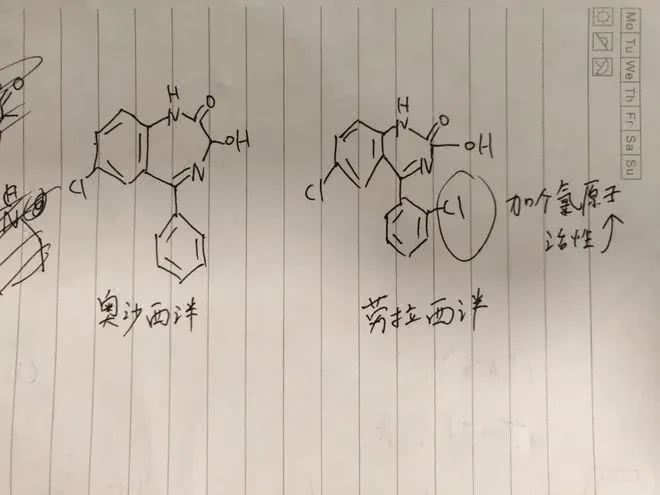 Mo Tu We Th Fr Sa Su
H
N
O
OH
N
Cl
H
N
O
OH
N
Cl
Cl
加个氯原子
活性↑
奥沙西泮
劳拉西泮